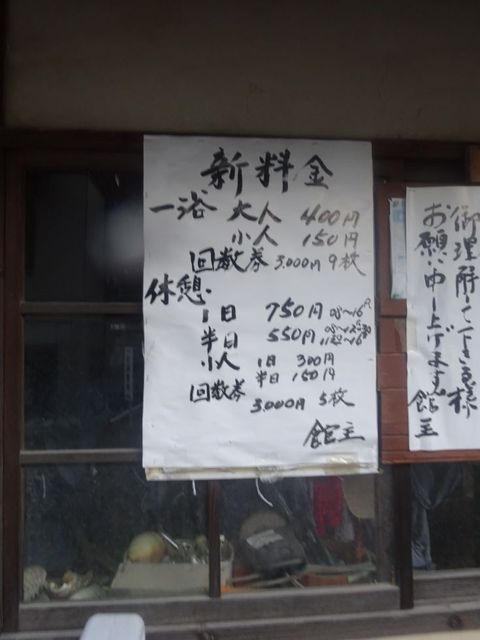 新料金
一浴 大人 400円
小人 150円
回数券 3,000円 9枚
休憩・
1日 750円
半日 550円
小人 1日 300円
半日 150円
回数券
3,000円 5枚
館主
御理解して下さる様
お願い申し上げます。
館主